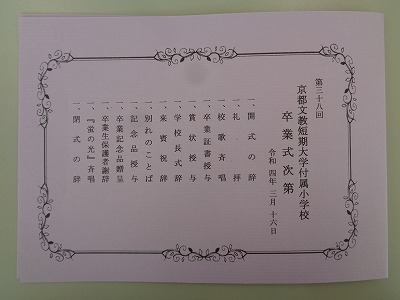 第三十八回
京都文教短期大学付属小学校
卒業式次第
令和四年三月十六日
一、開式の辞
一、礼拝
一、校歌斉唱
一、卒業証書授与
一、賞状授与
一、学校長式辞
一、来賓祝辞
一、別れのことば
一、記念品授与
一、卒業記念品贈呈
一、卒業生保護者謝辞
一、『蛍の光』斉唱
一、閉式の辞